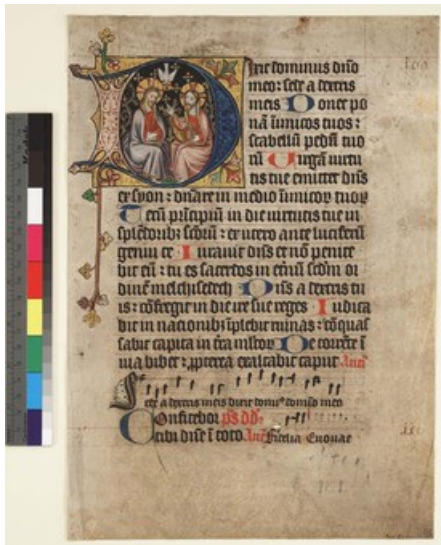 Dixit dominus dño
meo: sede a dextris
meis Donec po
nã inimicos tuos:
scabellũ pedũ tuo
rũ Virgam virtu
tis tue emittet dñs
ex syon: dñare in medio inimicor tuor
Tecũ principiũ in die virtutis tue in
splẽdorib; sctorũ: ex utero ante luciferũ
genui te Iuravit dñs et nõ penite
bit eũ: tu es sacerdos in etnũ scdm or
dinẽ melchisedech Dñs a dextris tu
is: cõfregit in die ire sue reges Iudica
bit in nacionib; ĩplebit ruinas: cõquas
sabit capita in tra mltor De torrẽte ĩ
via bibet: ppterea exaltabit caput Añ
Sede a dextris meis dixit domin' domĩo meo
Confitebor ps dd.
tibi dñe ĩ toto Añ Fidelia Euouae